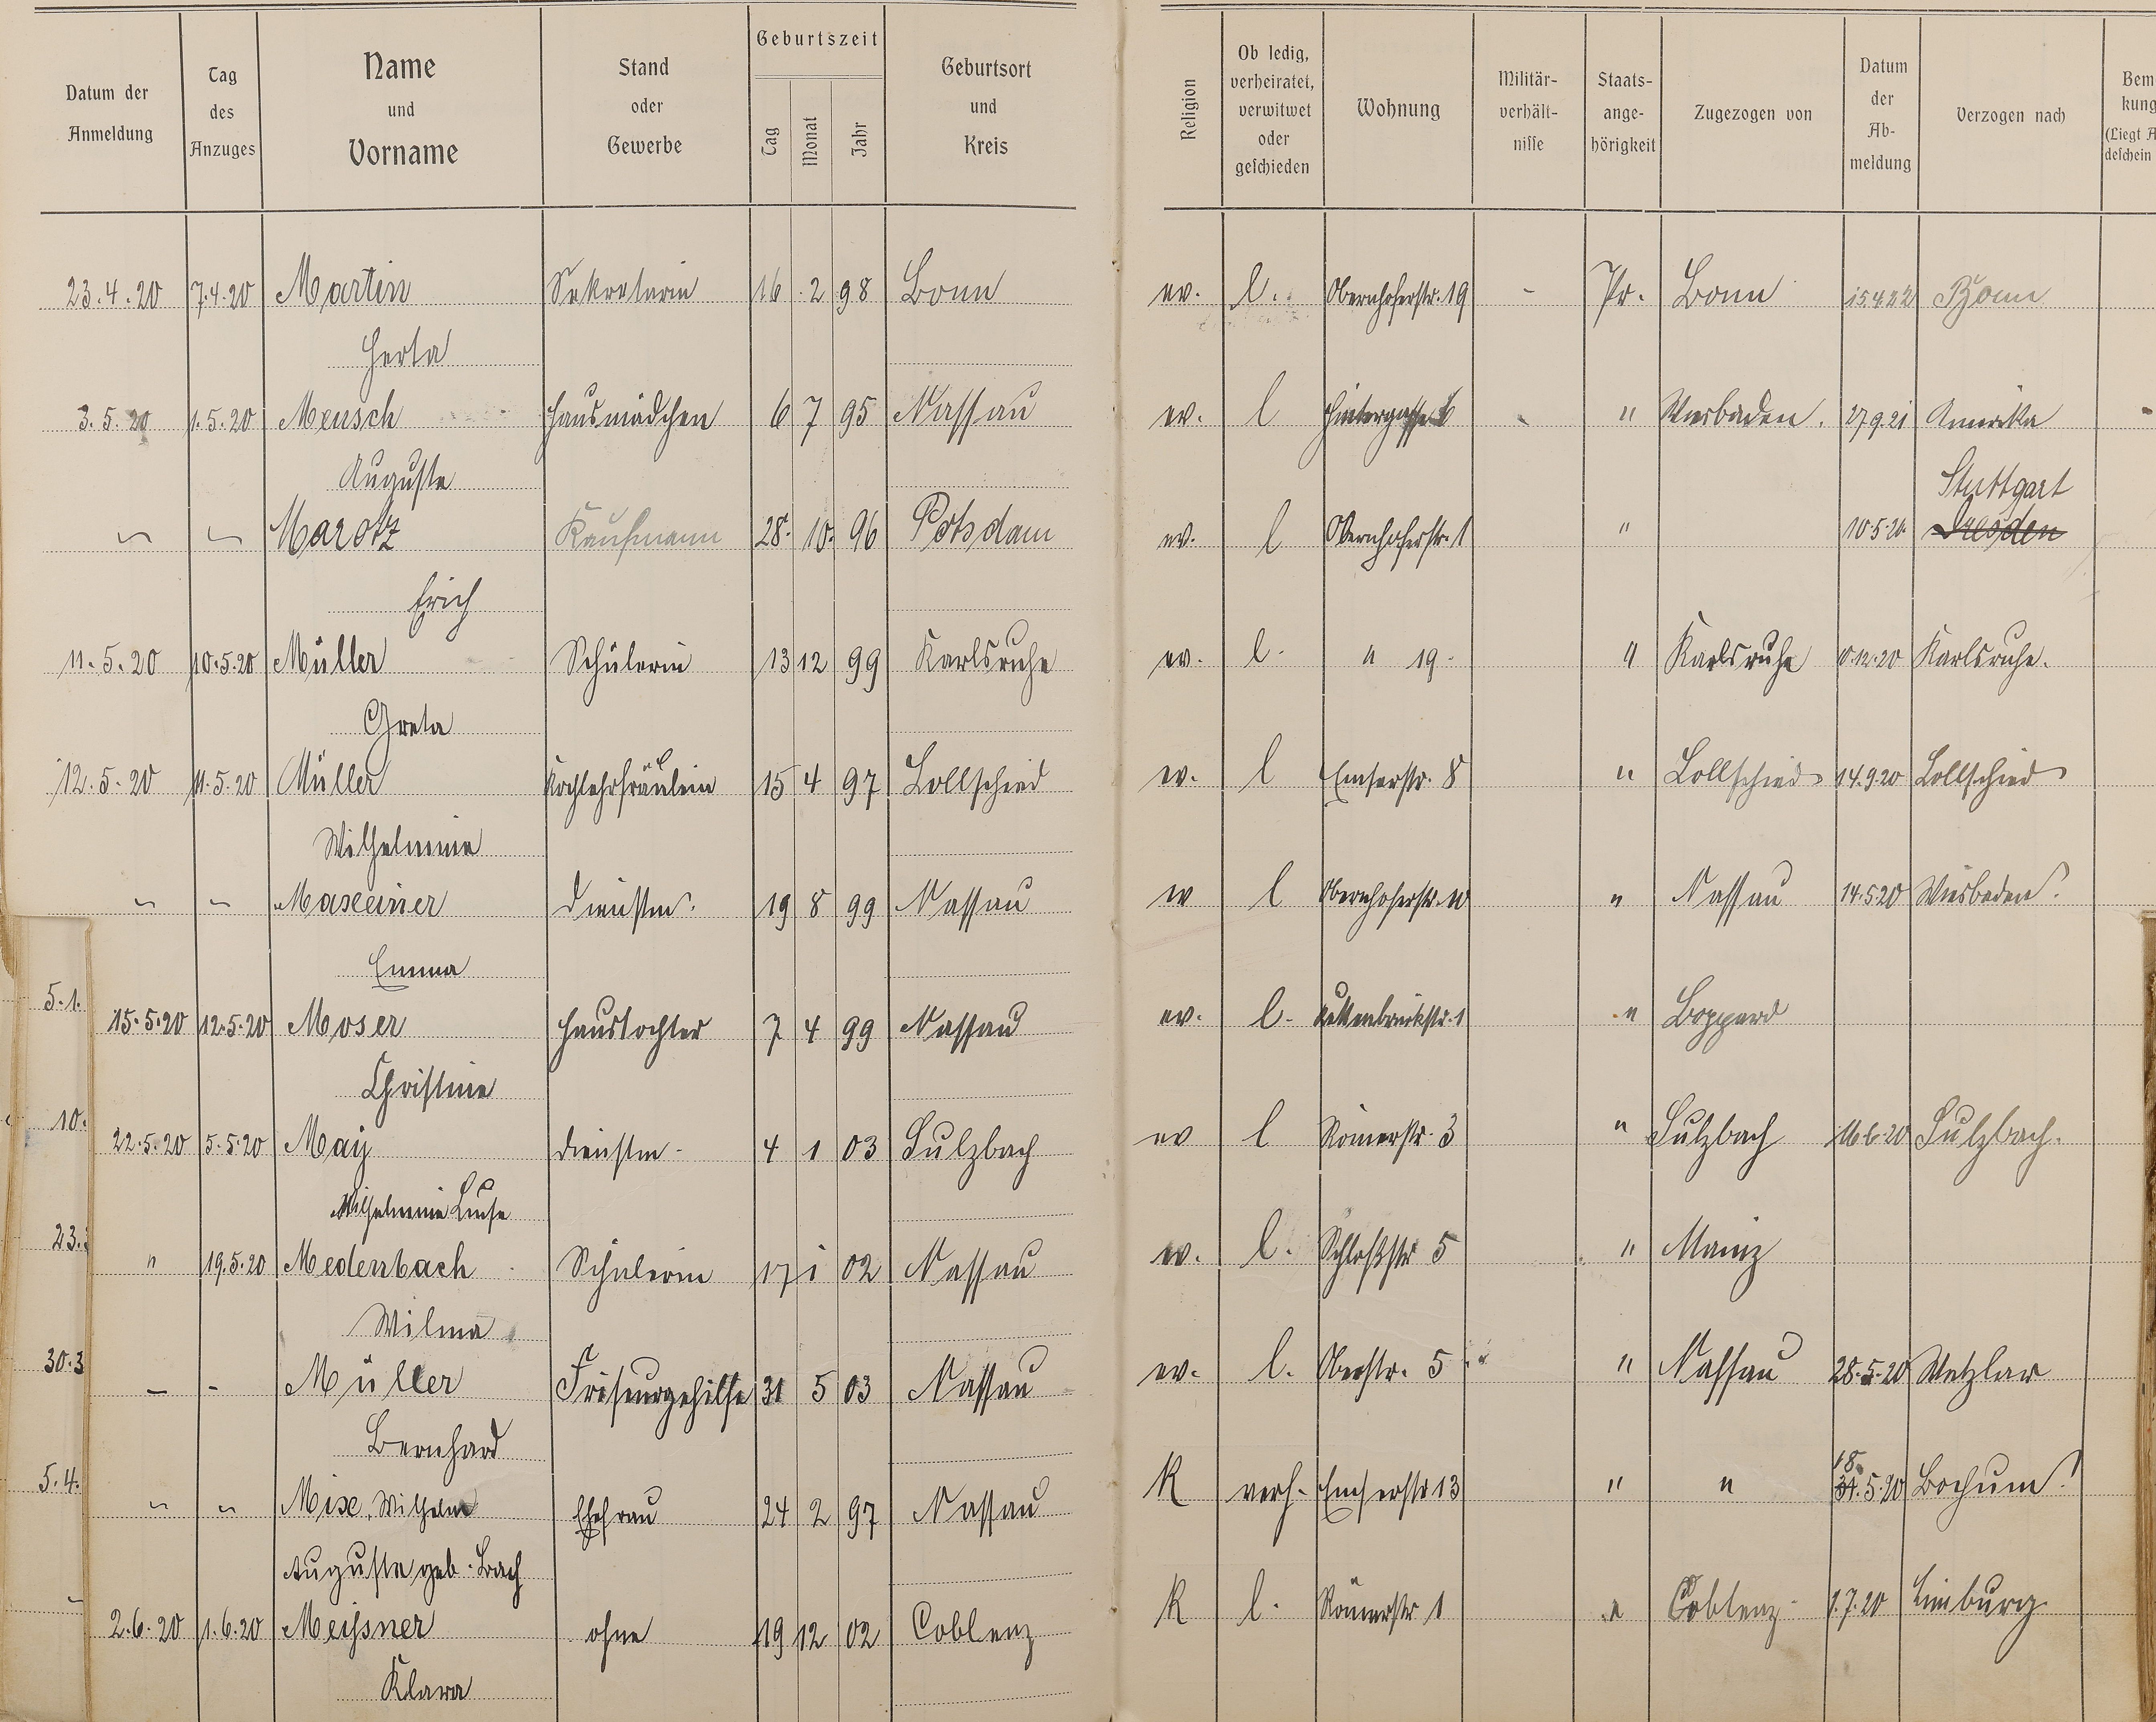 Datum der Anmeldung | Tag des Anzuges | Name und Vorname | Stand oder Gewerbe | Geburtszeit Tag Monat Jahr | Geburtsort und Kreis | Religion | Ob ledig, verheiratet, verwitwet oder geschieden | Wohnung | Militär-verhält-nisse | Staats-ange-hörigkeit | Zugezogen von | Datum der Ab-meldung | Verzogen nach | Bem kung (Liegt A deschein
23.4.20 7.4.20 Martin Sekretärin 16 2 98 Bonn ev. l. Obernhoferstr. 19 - Pr. Bonn 15.4.22 Bonn
Herta
3.5.20 1.5.20 Meusch Hausmädchen 6 7 95 Nassau ev. l Hintergasse " Wiesbaden. 27.9.21 Amerika
Auguste
Stuttgart
" " Marotz Kaufmann 28. 10. 96 Potsdam ev. l Obernhoferstr. 1 " 10.5.20 Dresden
Erich
11.5.20 10.5.20 Müller Schülerin 13 12 99 Karlsruhe ev. l. " 19. " Karlsruhe 12.20 Karlsruhe.
Greta
12.5.20 11.5.20 Müller Kochlehrfräulein 15 4 97 Lollschied ev. l Emserstr. 8 " Lollschied 14.9.20 Lollschied
Wilhelmine
" " Maxeiner Dienstm. 19 8 99 Nassau ev l Obernhoferstr. 10 " Nassau 14.5.20 Wiesbaden
Emma
5.1.
15.5.20 12.5.20 Moser Haustochter 7 4 99 Nassau ev. l. Kettenbrückstr. 1 " Boppard
Christine
10.
22.5.20 5.5.20 May Dienstm. 4 1 03 Sulzbach ev l Römerstr. 3 " Sulzbach 16.6.20 Sulzbach.
Wilhelmine Luise
23.
" 19.5.20 Medenbach Schülerin 17 1 02 Nassau ev. l. Schloßstr 5 " Mainz
Wilma
30.3
- - Müller Friseurgehilfe 31 5 03 Nassau ev. l. Oberstr. 5 " Nassau 28.5.20 Wetzlar
Bernhard
5.4.
18.
" " Mixe, Wilhelm Ehefrau 24 2 97 Nassau K verh. Emserstr 13 " " 31.5.20 Bochum
Auguste geb. Bach
2.6.20 1.6.20 Meißner ohne 19 12 02 Coblenz K l. Römerstr 1 " Coblenz 1.7.20 Limburg
Klara